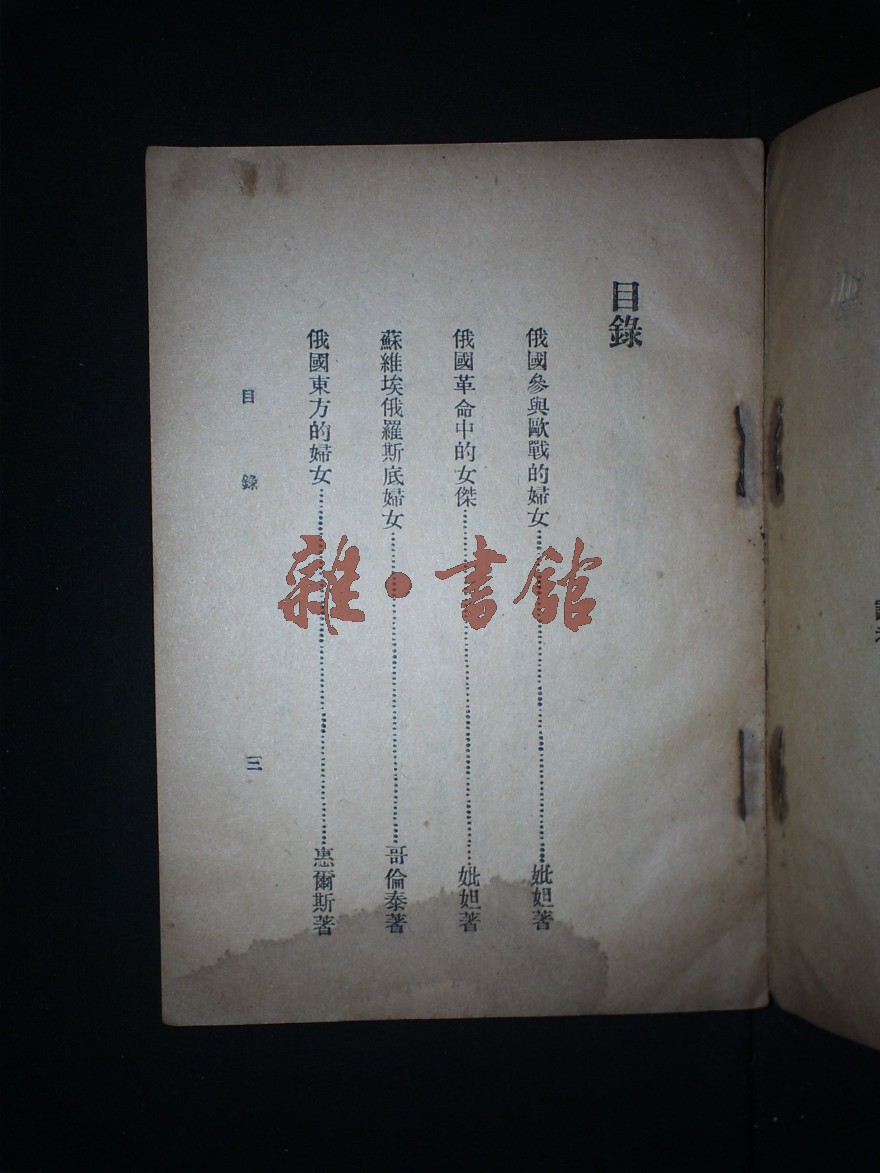 目錄
俄國參與歐戰的婦女……妣妲著
俄國革命中的女傑……妣妲著
蘇維埃俄羅斯底婦女……哥倫泰著
俄國東方的婦女……惠爾斯著
目錄 三
雜·書館